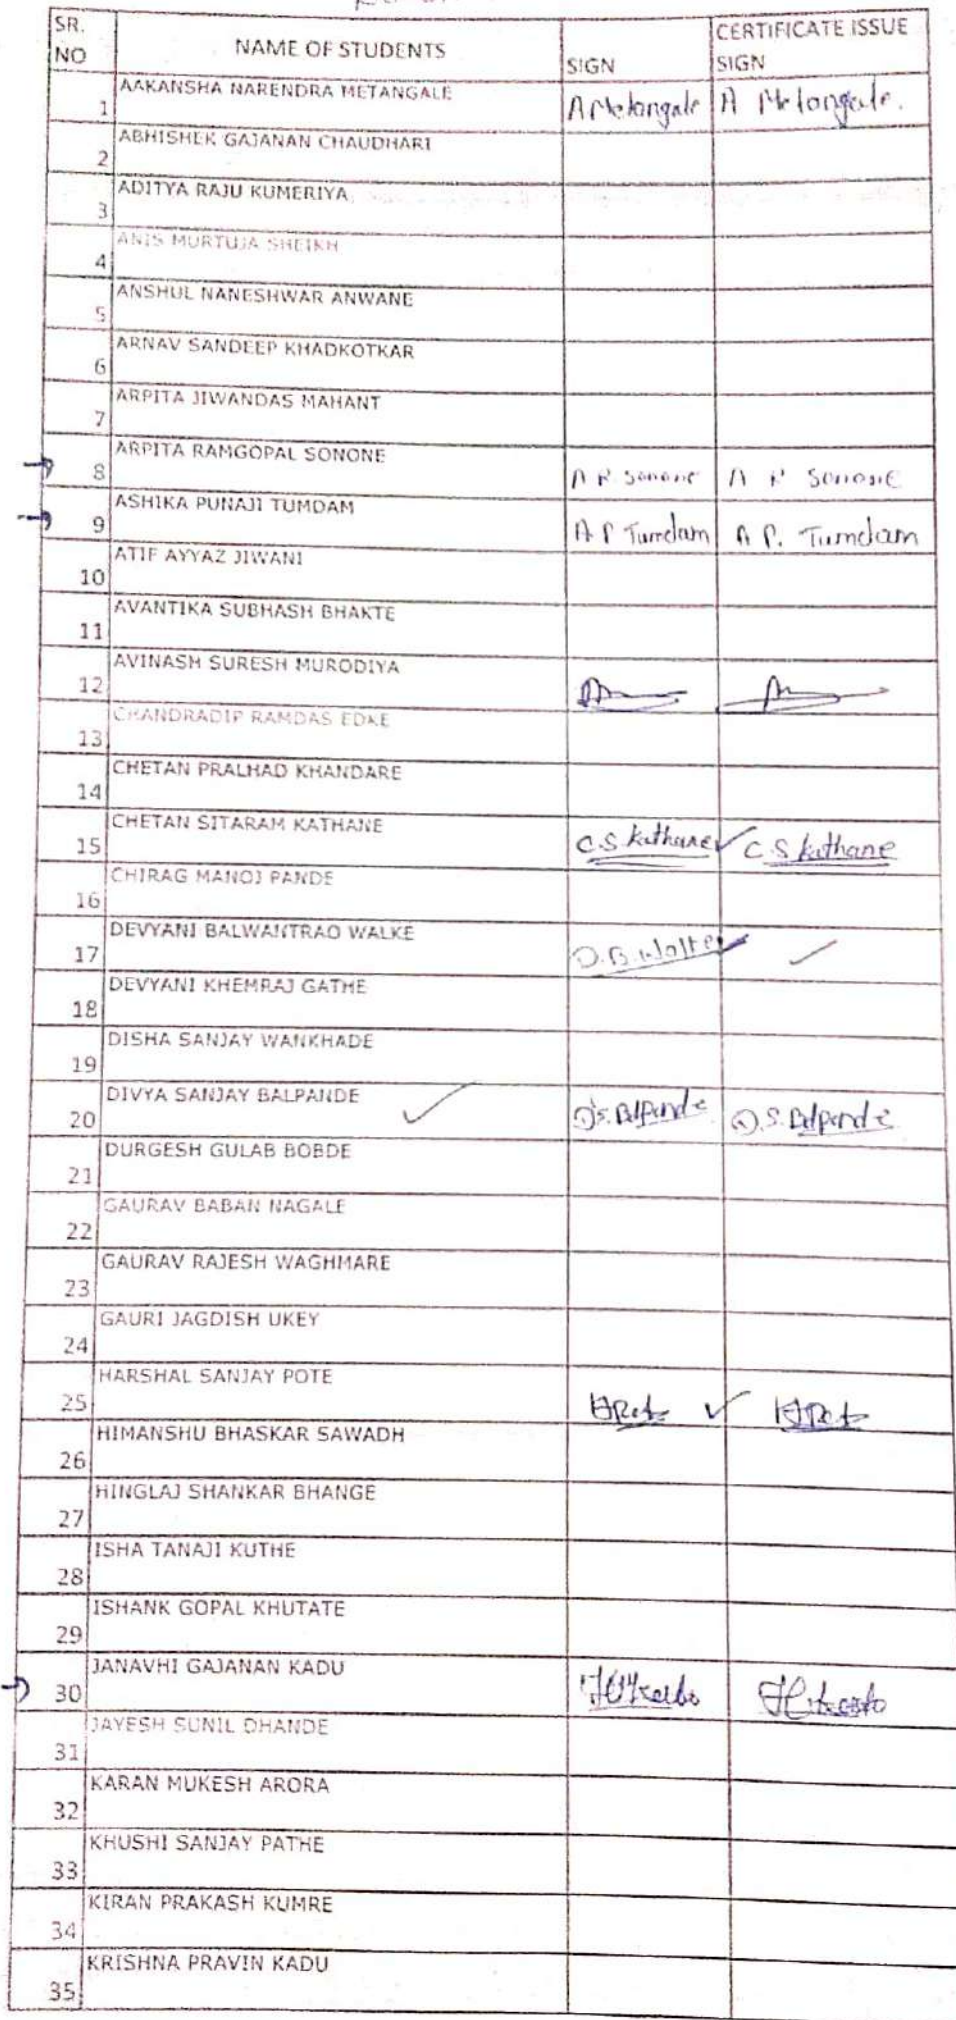 SR. NO NAME OF STUDENTS SIGN CERTIFICATE ISSUE SIGN
1 AAKANSHA NARENDRA METANGALE AMetangale A Metangale.
2 ABHISHEK GAJANAN CHAUDHARI
3 ADITYA RAJU KUMERIYA
4 ANIS MURTUJA SHEIKH
5 ANSHUL NANESHWAR ANWANE
6 ARNAV SANDEEP KHADKOTKAR
7 ARPITA JIWANDAS MAHANT
8 ARPITA RAMGOPAL SONONE A R Sonone A R Sonone
9 ASHIKA PUNAJI TUMDAM A P Tumdam A P. Tumdam
10 ATIF AYYAZ JIWANI
11 AVANTIKA SUBHASH BHAKTE
12 AVINASH SURESH MURODIYA
13 CHANDRADIP RAMDAS EDKE
14 CHETAN PRALHAD KHANDARE
15 CHETAN SITARAM KATHANE C.S.Kathane ✓ C.S.Kathane
16 CHIRAG MANOJ PANDE
17 DEVYANI BALWANTRAO WALKE D.B.Walke ✓ ✓
18 DEVYANI KHEMRAJ GATHE
19 DISHA SANJAY WANKHADE
20 DIVYA SANJAY BALPANDE ✓ D.S.Balpande D.S.Balpande
21 DURGESH GULAB BOBDE
22 GAURAV BABAN NAGALE
23 GAURAV RAJESH WAGHMARE
24 GAURI JAGDISH UKEY
25 HARSHAL SANJAY POTE HPote ✓ HPote
26 HIMANSHU BHASKAR SAWADH
27 HINGLAJ SHANKAR BHANGE
28 ISHA TANAJI KUTHE
29 ISHANK GOPAL KHUTATE
30 JANAVHI GAJANAN KADU
31 JAYESH SUNIL DHANDE
32 KARAN MUKESH ARORA
33 KHUSHI SANJAY PATHE
34 KIRAN PRAKASH KUMRE
35 KRISHNA PRAVIN KADU